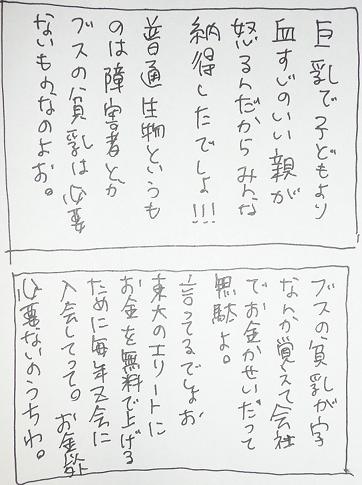 巨乳で子どもより
血すじのいい親が
怒るんだからみんな
納得したでしょ!!!
普通生物というも
のは障害者とか
ブスの貧乳は必要
ないものなのよお。
ブスの貧乳が字
なんか覚えて会社
でお金かせいだって
無駄よ。
言ってるでしょお
東大のエリートに
お金を無料で上げる
ために毎年〆会に
入会してって。お金齢
必要ないのうちわ。